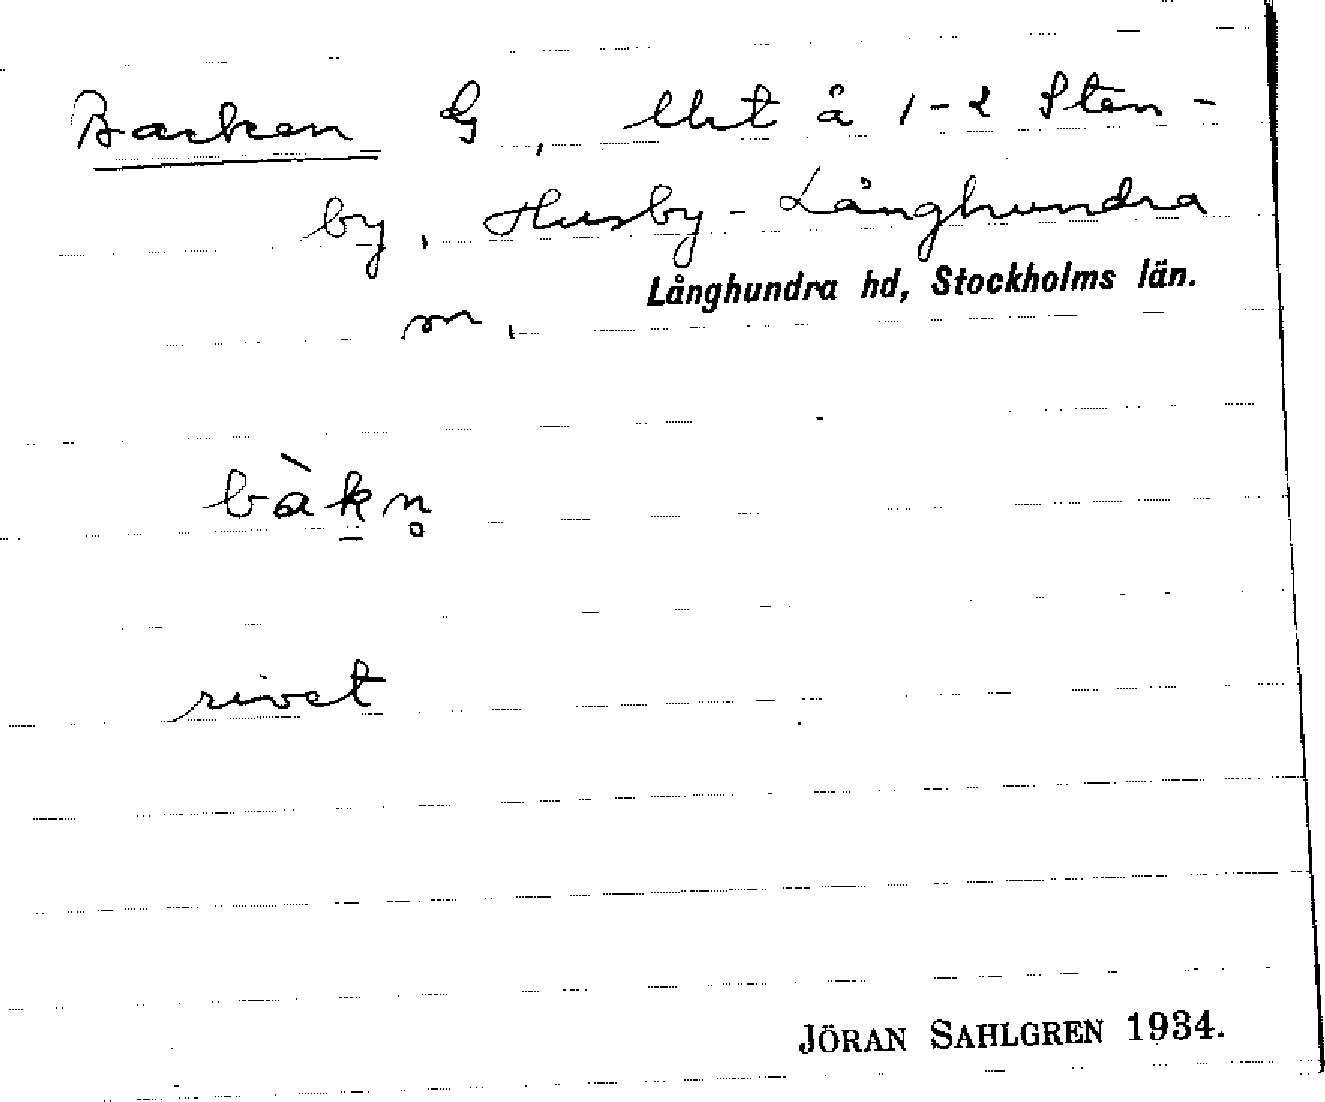 Backen G, lht å 1-2 Sten-
by, Husby-Långhundra
Långhundra hd, Stockholms län.
sn,
bàkn̥
rivet
JÖRAN SAHLGREN 1934.